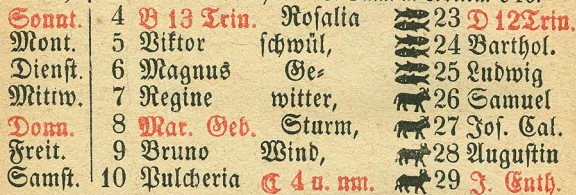 Sonnt. 4 B 13 Trin. Rosalia 23 D 12 Trin.
Mont. 5 Viktor schwül, 24 Barthol.
Dienst. 6 Magnus Ge- 25 Ludwig
Mittw. 7 Regine witter, 26 Samuel
Donn. 8 Mar. Geb. Sturm, 27 Jos. Cal.
Freit. 9 Bruno Wind, 28 Augustin
Samst. 10 Pulcheria ☾ 4 u. nm. 29 J. Enth.